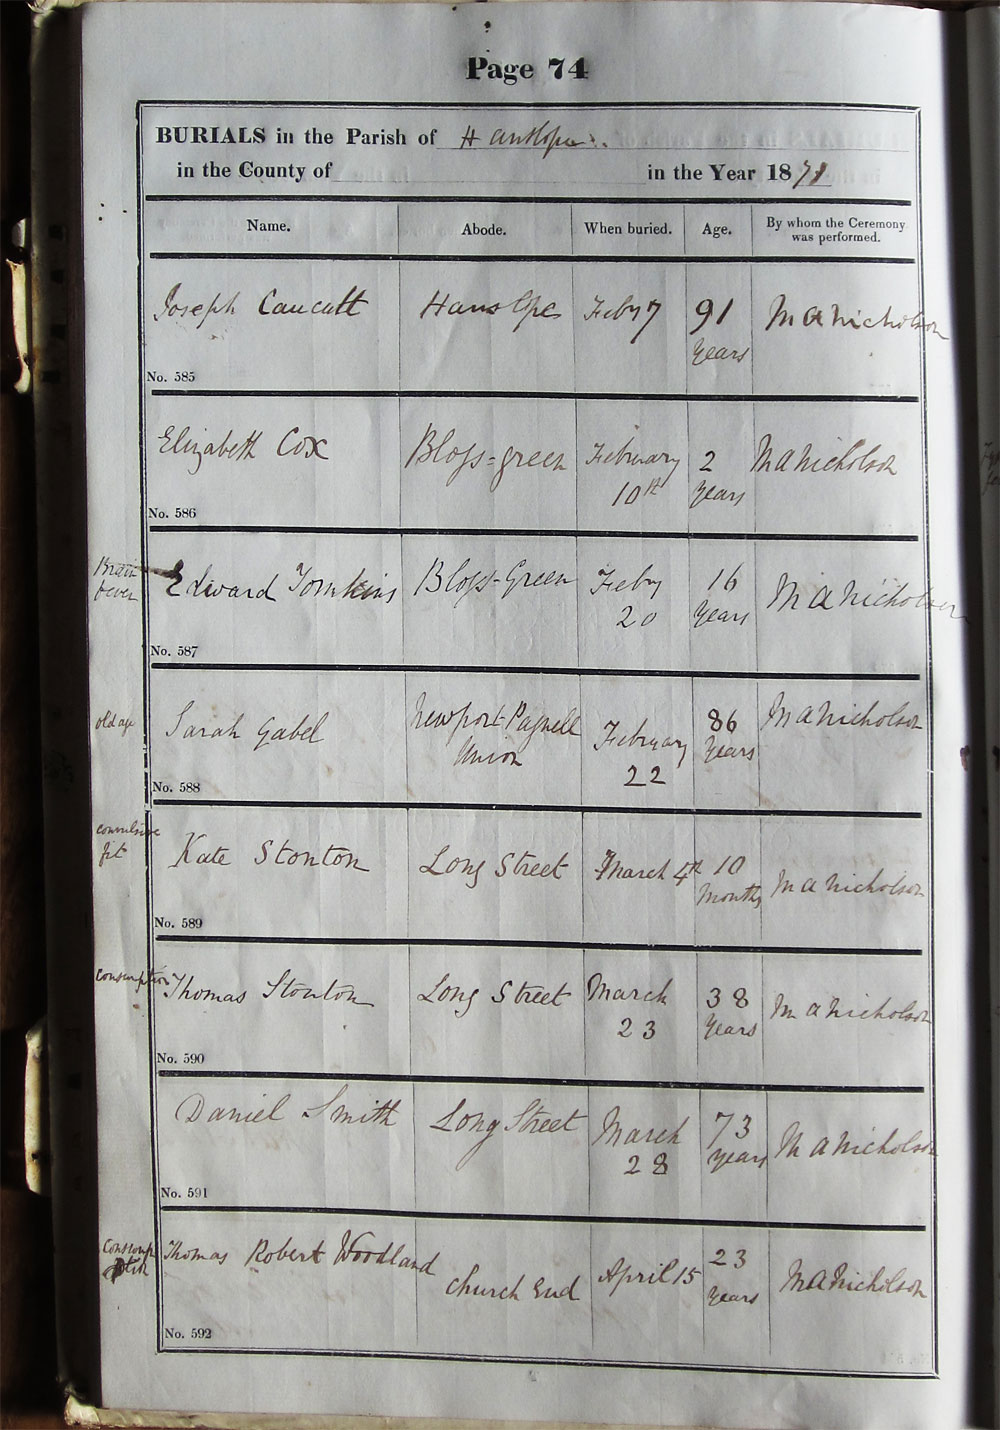 Page 74
BURIALS in the Parish of Hanslope
in the County of in the Year 1871
Name. Abode. When buried. Age. By whom the Ceremony was performed.
Joseph Caucutt Hanslope Feby 7 91 years M A Nicholson
No. 585
Elizabeth Cox Bloss-green February 10th 2 years M A Nicholson
No. 586
Brain fever Edward Tomkins Bloss-Green Feby 20 16 years M A Nicholson
No. 587
old age Sarah Gabel Newport-Pagnell Union February 22 86 years M A Nicholson
No. 588
convulsive fit Kate Stonton Long Street March 4th 10 months M A Nicholson
No. 589
consumption Thomas Stonton Long Street March 23 38 years M A Nicholson
No. 590
Daniel Smith Long Street March 28 73 years M A Nicholson
No. 591
Thomas Robert Woodland Church End April 15 23 years M A Nicholson
No. 592